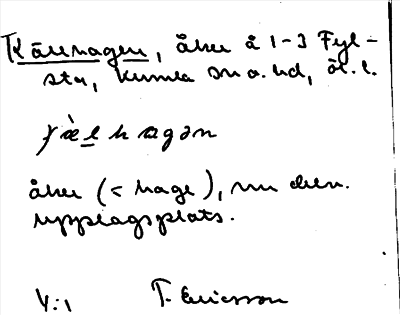 Kärrhagen, åker å 1-3 Fyl-
sta, Kumla sn o. hd, ör. l.
åker (< hage), nu den.
upplagsplats.
4:1 T. Ericsson